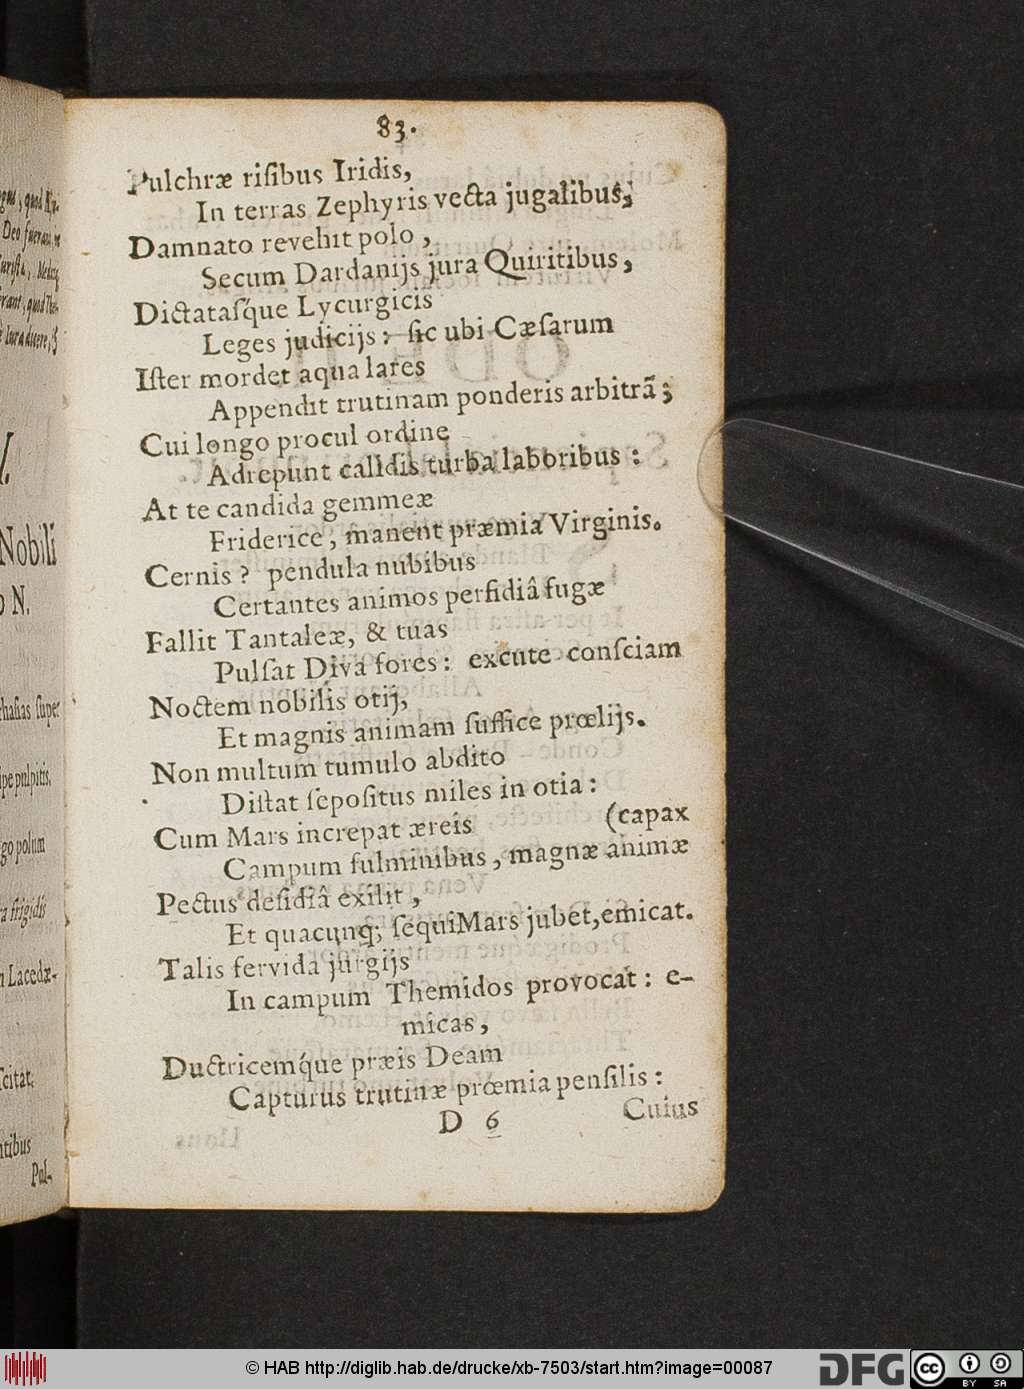 83.
Pulchræ riſibus Iridis,
In terras Zephyris vecta jugalibus,
Damnato revehit polo,
Secum Dardanijs jura Quiritibus,
Dictataſq́ue Lycurgicis
Leges judicijs: ſic ubi Cæſarum
Iſter mordet aqua lares
Appendit trutinam ponderis arbitrã;
Cui longo procul ordine
Adrepunt callidis turba laboribus:
At te candida gemmeæ
Friderice, manent præmia Virginis.
Cernis? pendula nubibus
Certantes animos perfidiâ fugæ
Fallit Tantaleæ, & tuas
Pulſat Diva fores: excute conſciam
Noctem nobilis otij,
Et magnis animam ſuffice prœlijs.
Non multum tumulo abdito
Diſtat ſepoſitus miles in otia:
Cum Mars increpat æreis (capax
Campum fulminibus, magnæ animæ
Pectus deſidiâ exilit,
Et quacunq; ſequi Mars jubet, emicat.
Talis fervida jurgijs
In campum Themidos provocat: e-
micas,
Ductricemq́ue præis Deam
Capturus trutinæ prœmia penſilis:
D 6 Cuius
Nobili
N.
ſuper
pulpitis.
polum
frigidis
Lacedæ-
Pul-
© HAB http://diglib.hab.de/drucke/xb-7503/start.htm?image=00087
DFG
cc BY SA